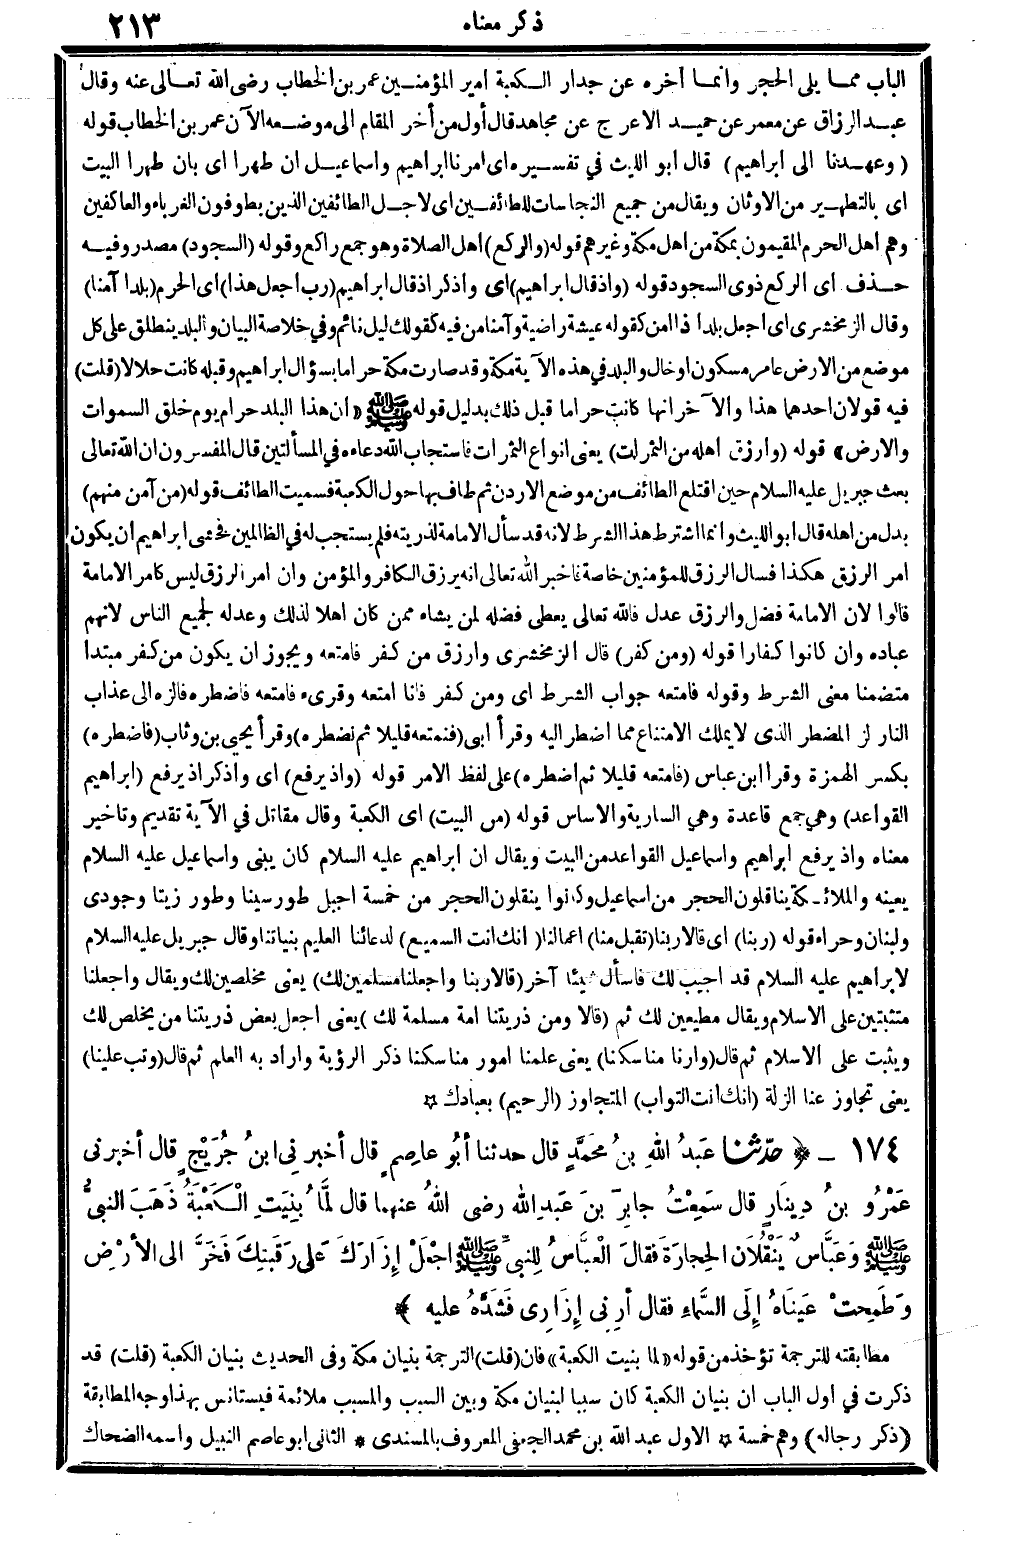 ذكر معناه ٢١٣
الباب مما يلى الحجر وانما أخره عن جدار الكعبة امير المؤمنين عمر بن الخطاب رضى الله تعالى عنه وقال
عبد الرزاق عن معمر عن حميد الاعرج عن مجاهد قال أول من أخر المقام الى موضعه الآن عمر بن الخطاب قوله
(وعهدنا الى ابراهيم) قال أبو الليث في تفسيره اى امرنا ابراهيم واسماعيل ان طهرا اى بان طهرا البيت
اى بالتطهير من الاوثان ويقال من جميع النجاسات للطائفين اى لاجل الطائفين الذين يطوفون الغرباء والعاكفين
وهم أهل الحرم المقيمون بمكة من اهل مكة وغيرهم قوله (والركع) اهل الصلاة وهو جمع راكع وقوله (السجود) مصدر وفيه
حذف اى الركع ذوى السجود قوله (واذ قال ابراهيم) اى واذكر اذ قال ابراهيم (رب اجعل هذا) اى الحرم (بلدا آمنا)
وقال الزمخشرى اى اجعل بلدا ذا امن كقوله عيشة راضية وآمنا من فيه كقولك ليل نائم وفي خلاصة البيان والبلد ينطلق على كل
موضع من الارض عامر مسكون او خال والبلد في هذه الآية مكة وقد صارت مكة حراما بسؤال ابراهيم وقبله كانت حلالا (قلت)
فيه قولان احدهما هذا والآخر انها كانت حراما قبل ذلك بدليل قوله ﷺ «ان هذا البلد حرام يوم خلق السموات
والارض» قوله (وارزق أهله من الثمرات) يعنى انواع الثمرات فاستجاب الله دعاءه في المسألتين قال المفسرون ان الله تعالى
بعث جبريل عليه السلام حين اقتلع الطائف من موضع الاردن ثم طاف بها حول الكعبة فسميت الطائف قوله (من آمن منهم)
بدل من اهله قال ابو الليث وانما اشترط هذا الشرط لانه قد سأل الامامة لذريته فلم يستجب له في الظالمين فخشى ابراهيم ان يكون
امر الرزق هكذا فسال الرزق للمؤمنين خاصة فاخبر الله تعالى انه يرزق الكافر والمؤمن وان امر الرزق ليس كامر الامامة
قالوا لان الامامة فضل والرزق عدل فالله تعالى يعطى فضله لمن يشاء ممن كان اهلا لذلك وعدله لجميع الناس لانهم
عباده وان كانوا كفارا قوله (ومن كفر) قال الزمخشرى وارزق من كفر فامتعه ويجوز ان يكون من كفر مبتدا
متضمنا معنى الشرط وقوله فامتعه جواب الشرط اى ومن كفر فانا امتعه وقرىء فامتعه فاضطره فالزه الى عذاب
النار لز المضطر الذى لا يملك الامتناع مما اضطر اليه وقرأ ابى (فنمتعه قليلا ثم نضطره) وقرأ يحيى بن وثاب (فاضطره)
بكسر الهمزة وقرأ ابن عباس (فامتعه قليلا ثم اضطره) على لفظ الامر قوله (واذ يرفع) اى واذكر اذ يرفع (ابراهيم
القواعد) وهى جمع قاعدة وهي السارية والاساس قوله (من البيت) اى الكعبة وقال مقاتل في الآية تقديم وتاخير
معناه واذ يرفع ابراهيم واسماعيل القواعد من البيت ويقال ان ابراهيم عليه السلام كان يبنى واسماعيل عليه السلام
يعينه والملائكة يناقلون الحجر من اسماعيل وكانوا ينقلون الحجر من خمسة اجبل طور سينا وطور زيتا وجودى
ولبنان وحراء قوله (ربنا) اى قالا ربنا (تقبل منا) اعمالنا (انك انت السميع) لدعائنا العليم بنياتنا وقال جبريل عليه السلام
لابراهيم عليه السلام قد اجيب لك فاسأل شيئا آخر (قالا ربنا واجعلنا مسلمين لك) يعنى مخلصين لك ويقال واجعلنا
مثتبتين على الاسلام ويقال مطيعين لك ثم (قالا ومن ذريتنا امة مسلمة لك) يعنى اجعل بعض ذريتنا من يخلص لك
ويثبت على الاسلام ثم قال (وارنا مناسكنا) يعنى علمنا امور مناسكنا ذكر الرؤية واراد به العلم ثم قال (وتب علينا)
يعنى تجاوز عنا الزلة (انك انت التواب) المتجاوز (الرحيم) بعبادك ✩
١٧٤ – ﴿ حَدَّثَنَا عَبْدُ اللهِ بنُ مُحَمَّدٍ قال حدثنا أبُو عاصِمٍ قال أخبرنِى ابنُ جُرَيْجٍ قال أخبرنى
عَمْرُو بنُ دِينَارٍ قال سَمِعْتُ جابِرَ بنَ عَبْدِ الله رضى اللهُ عنهما قال لَمَّا بُنِيَتِ الْكَعْبَةُ ذَهَبَ النبىُّ
ﷺ وَعَبَّاسٌ يَنْقُلَانِ الحِجَارَةَ فَقالَ الْعبَّاسُ لِلنبىِّ ﷺ اجْعَلْ إِزَارَكَ عَلى رَقَبَتِكَ فَخَرَّ الى الأرْضِ
وَطَمِحَتْ عَيْنَاهُ إِلَى السَّمَاءِ فقال أرِنِى إِزَارِى فَشَدَّهُ عليه ﴾
مطابقته للترجمة تؤخذ من قوله «لما بنيت الكعبة» فان (قلت) الترجمة بنيان مكة وفى الحديث بنيان الكعبة (قلت) قد
ذكرت في اول الباب ان بنيان الكعبة كان سببا لبنيان مكة وبين السبب والمسبب ملائمة فيستانس بهذا وجه المطابقة
(ذكر رجاله) وهم خمسة ✩ الاول عبد الله بن محمد الجعفى المعروف بالمسندى * الثانى ابو عاصم النبيل واسمه الضحاك